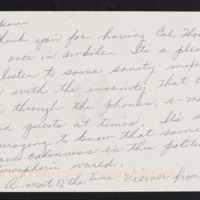 hank you for having Cal Tho
once in awhile. It's a plea
listen to some sanity, mixe
with the insanity that c
through the phones, e-ma
d guests at times. It's
uraging to know that some
calmness in this polit
mospheric world.
A most of the time viewer from